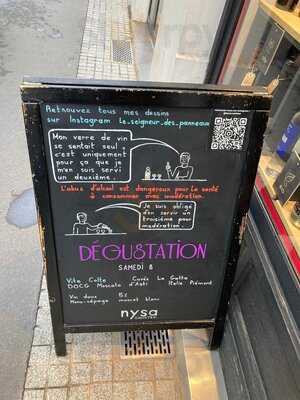 Retrouvez tous mes dessins
sur Instagram Le_seigneur_des_panneaux
Mon verre de vin
se sentait seul,
c'est uniquement
pour ça que je
m'en suis servi
un deuxième.
L'abus d'alcool est dangereux pour la santé
à consommer avec modération.
Je suis obligé
d'en servir un
troisième pour
modération.
DÉGUSTATION
SAMEDI 8
Vite Colte Cuvée La Gatta
DOCG Moscato d'Asti Italie Piémont
Vin doux
Mono-cépage muscat blanc
nysa